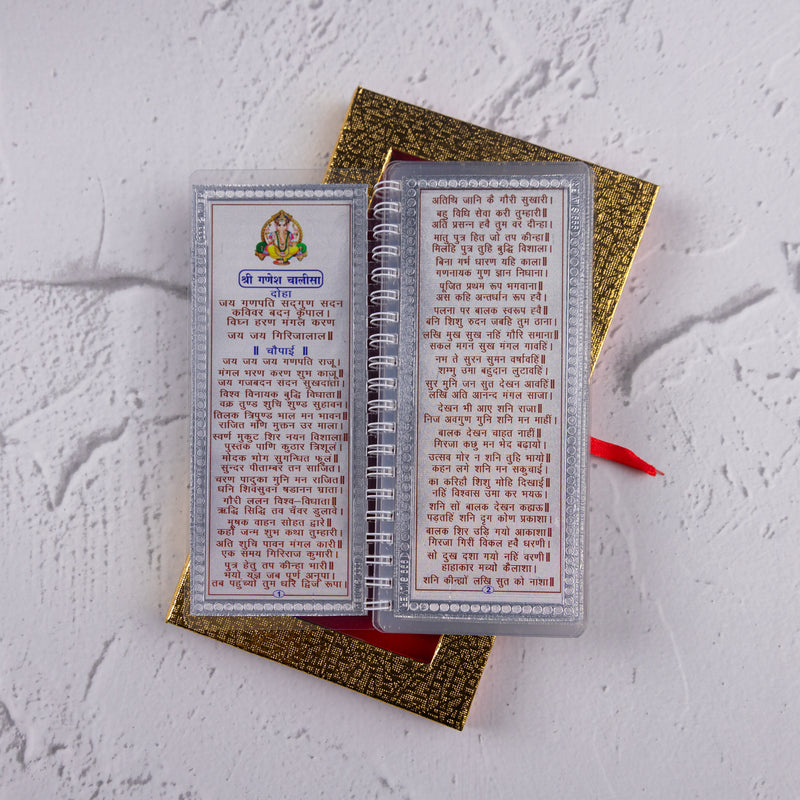 श्री गणेश चालीसा
दोहा
जय गणपति सद्गुण सदन
कविवर बदन कृपाल।
विघ्न हरण मंगल करण
जय जय गिरिजालाल॥
॥ चौपाई ॥
जय जय जय गणपति राजू।
मंगल भरण करण शुभ काजू॥
जय गजबदन सदन सुखदाता।
विश्व विनायक बुद्धि विधाता॥
वक्र तुण्ड शुचि शुण्ड सुहावन।
तिलक त्रिपुण्ड भाल मन भावन॥
राजित मणि मुक्तन उर माला।
स्वर्ण मुकुट शिर नयन विशाला॥
पुस्तक पाणि कुठार त्रिशूलं।
मोदक भोग सुगन्धित फूलं॥
सुन्दर पीताम्बर तन साजित।
चरण पादुका मुनि मन राजित॥
धनि शिवसुवन षडानन भ्राता।
गौरी ललन विश्व-विधाता॥
ऋद्धि सिद्धि तव चँवर डुलावे।
मूषक वाहन सोहत द्वारे॥
कहौं जन्म शुभ कथा तुम्हारी।
अति शुचि पावन मंगल कारी॥
एक समय गिरिराज कुमारी।
पुत्र हेतु तप कीन्हा भारी॥
भयो यज्ञ जब पूर्ण अनूपा।
तब पहुच्यो तुम धरि द्विज रूपा।
1
अतिथि जानि कै गौरी सुखारी।
बहु विधि सेवा करी तुम्हारी॥
अति प्रसन्न ह्वै तुम वर दीन्हा।
मातु पुत्र हित जो तप कीन्हा॥
मिलहि पुत्र तुहि बुद्धि विशाला।
बिना गर्भ धारण यहि काला॥
गणनायक गुण ज्ञान निधाना।
पूजित प्रथम रूप भगवाना॥
अस कहि अन्तर्धान रूप ह्वै।
पलना पर बालक स्वरूप ह्वै॥
बनि शिशु रुदन जबहि तुम ठाना।
लखि मुख सुख नहिं गौरि समाना॥
सकल मगन सुख मंगल गावहिं।
नभ ते सुरन सुमन वर्षावहिं॥
शम्भु उमा बहुदान लुटावहिं।
सुर मुनि जन सुत देखन आवहिं॥
लखि अति आनन्द मंगल साजा।
देखन भी आए शनि राजा॥
निज अवगुण गुनि शनि मन माहीं।
बालक देखन चाहत नाहीं॥
गिरजा कछु मन भेद बढ़ायो।
उत्सव मोर न शनि तुहि भायो॥
कहन लगे शनि मन सकुचाई।
का करिहौ शिशु मोहि दिखाई॥
नहिं विश्वास उमा कर भयऊ।
शनि सों बालक देखन कहाऊ॥
पड़तहिं शनि दृग कोण प्रकाशा।
बालक शिर उड़ि गयो आकाशा॥
गिरजा गिरीं विकल ह्वै धरणी।
सो दुख दशा गयो नहिं वरणी॥
हाहाकार मच्यो कैलाशा।
शनि कीन्ह्यों लखि सुत को नाशा॥
2